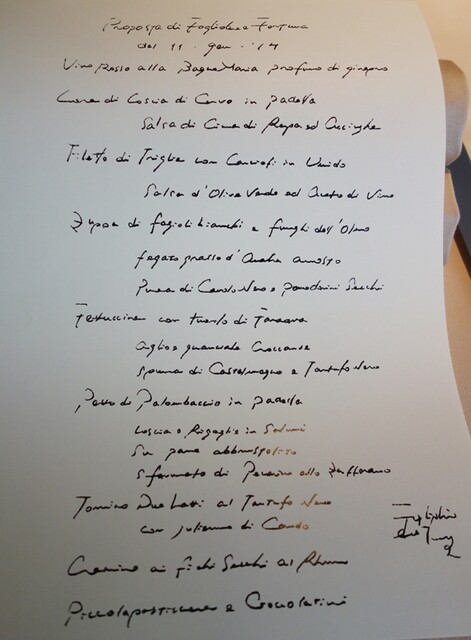 Proposta di Fogliolina e Fortuna
del 11 . gen . 14
Vino Rosso alla Bagna Maria profumo di ginepro
Cuore di Coscia di Cervo in padella
Salsa di Cime di Rapa ed Acciughe
Filetto di Triglia con Carciofi in Umido
Salsa d'Oliva Verde ed Aceto di Vino
Zuppa di fagioli bianchi e funghi dell'Olmo
fegato grasso d'Anatra arrosto
Purea di Cavolo Nero e pomodorini Secchi
Fettuccine con tuorlo di Faraona
Aglio e guanciale Croccante
Spuma di Castelmagno e Tartufo Nero
Petto di Palombaccio in padella
Coscia e Rigaglie in Salmì
Su pane abbrustolito
Sformato di Pecorino allo Zafferano
Tomino Due Latti al Tartufo Nero
con julienne di Cardo
Cremino ai fichi Secchi al Rhum
Piccola pasticceria e Cioccolatini